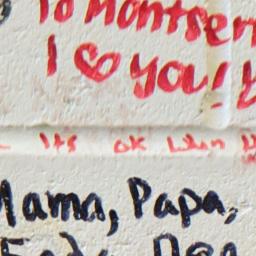 To Montserr
I ♡ you!
Its ok when
Mama, Papa,